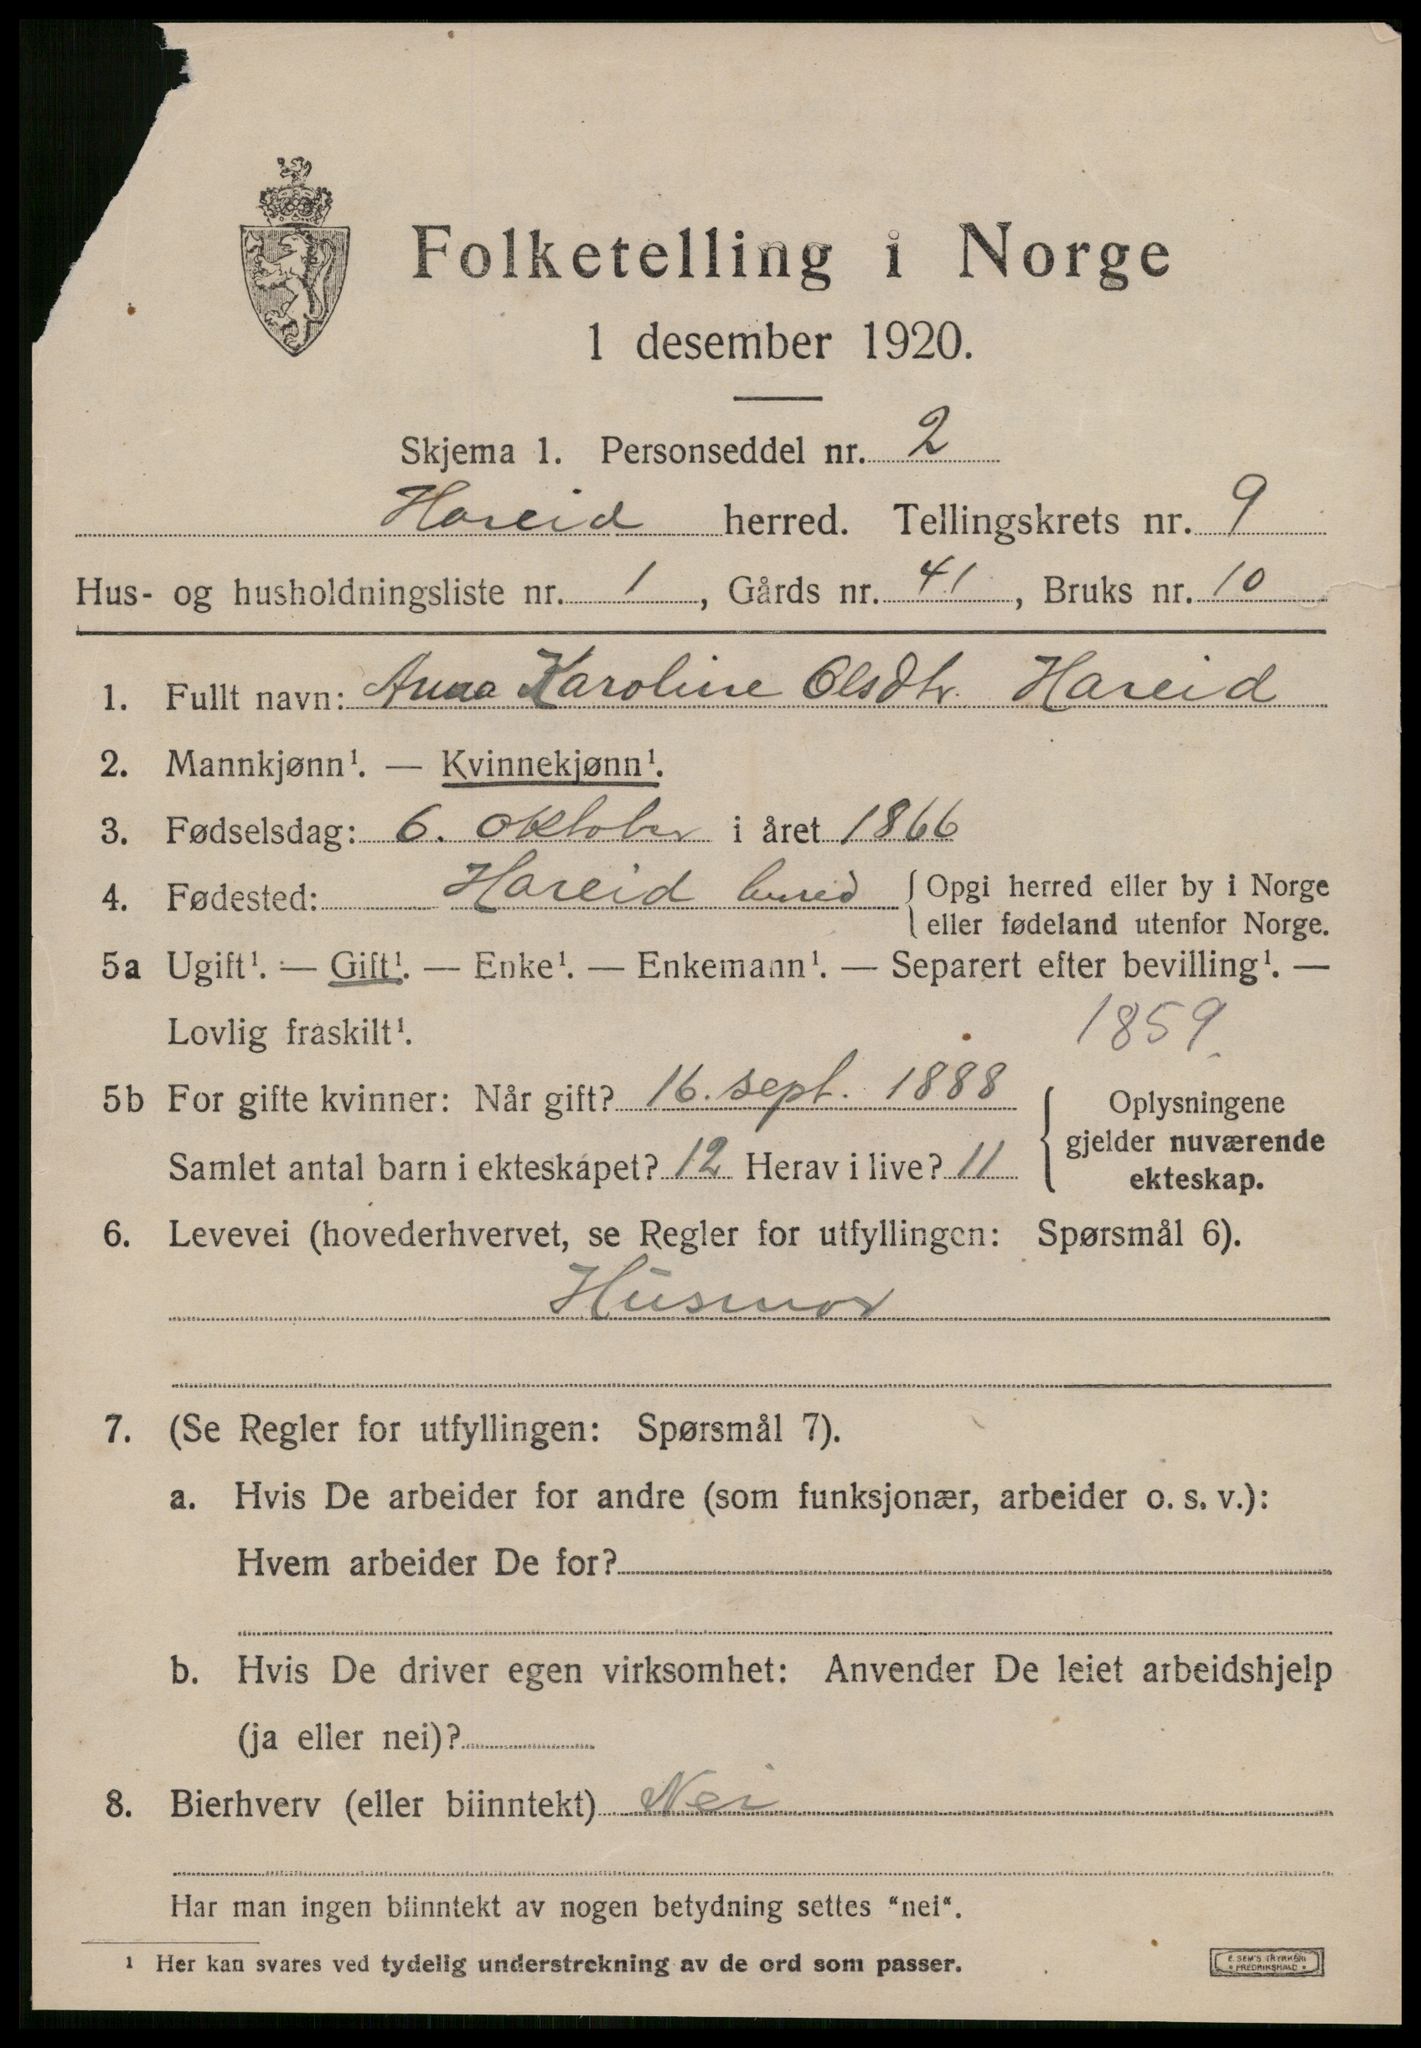 Folketelling i Norge
1 desember 1920.
Skjema 1. Personseddel nr. 2
Hareid herred. Tellingskrets nr. 9
Hus- og husholdningsliste nr. 1, Gårds nr. 41, Bruks nr. 10
1. Fullt navn: Anna Karoline Olsdtr. Hareid
2. Mannkjønn¹. — Kvinnekjønn¹.
3. Fødselsdag: 6. oktober i året 1866
4. Fødested: Hareid herred { Opgi herred eller by i Norge
eller fødeland utenfor Norge.
5a Ugift¹. — Gift¹. — Enke¹. — Enkemann¹. — Separert efter bevilling¹. —
Lovlig fraskilt¹. 1859
5b For gifte kvinner: Når gift? 16. sept. 1888
Samlet antal barn i ekteskapet? 12 Herav i live? 11
{ Oplysningene
gjelder nuværende
ekteskap.
6. Levevei (hovederhvervet, se Regler for utfyllingen: Spørsmål 6).
Husmor
7. (Se Regler for utfyllingen: Spørsmål 7).
a. Hvis De arbeider for andre (som funksjonær, arbeider o. s. v.):
Hvem arbeider De for?
b. Hvis De driver egen virksomhet: Anvender De leiet arbeidshjelp
(ja eller nei)?
8. Bierhverv (eller biinntekt) Nei
Har man ingen biinntekt av nogen betydning settes "nei".
¹ Her kan svares ved tydelig understrekning av de ord som passer.
E. SEM'S TRYKKERI
FREDRIKSHALD